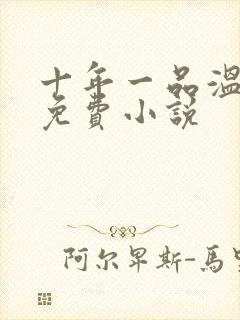 十年一品温
免费小説
阿尔卑斯-馬